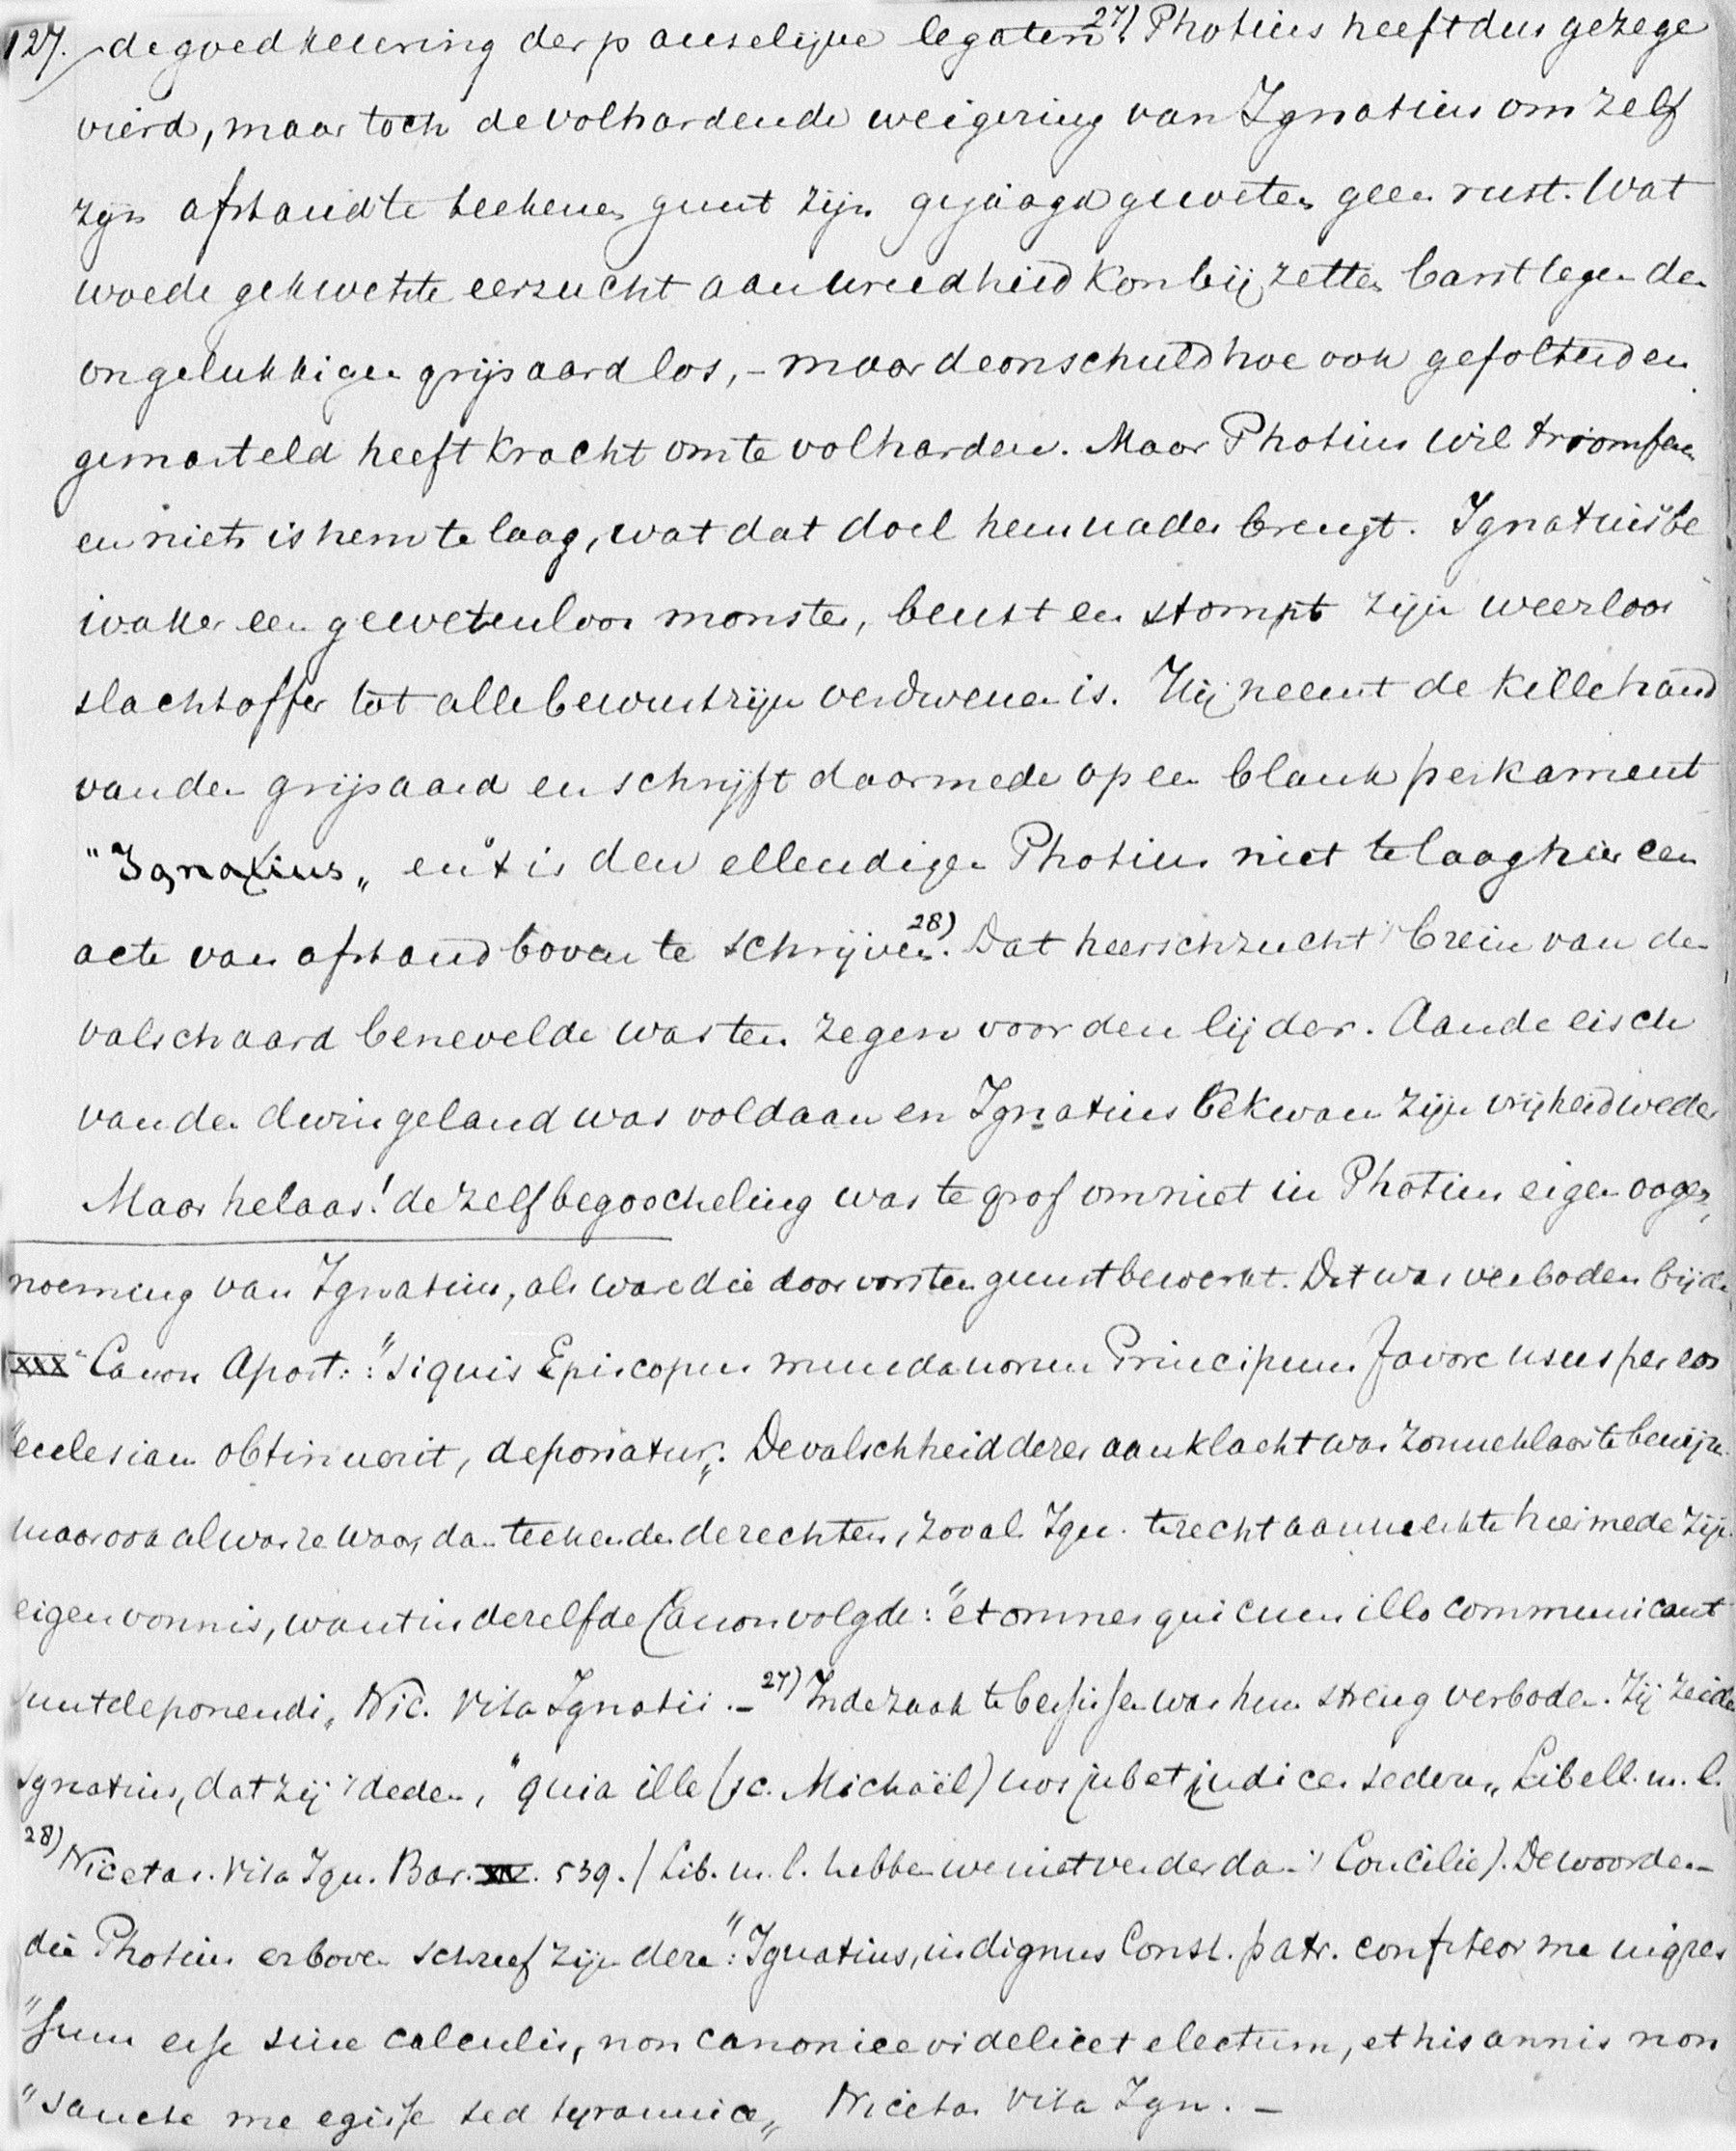 127. de goedkeuring der pauselijke legaten.27) Photius heeft dus gezege
vierd, maar toch de volhardende weigering van Ignatius om zelf
zijn afstand te teekenen gunt zijn gejaagd geweten geen rust. Wat
woede gekwetste eerzucht aan wreedheid kon bij zetten barst tegen den
ongelukkigen grijsaard los, - maar de onschuld hoe ook gefolterd en
gemarteld heeft kracht om te volharden. Maar Photius wil triomfen
en niets is hem te laag, wat dat doel hem nader brengt. Ignatius' be
waker een gewetenloos monster, beukt en stompt zijn weerloos
slachtoffer tot alle bewustzijn verdwenen is. Hij neemt de kille hand
van den grijsaard en schrijft daarmede op een blank perkament
"Ignatius„ en 't is den ellendigen Photius niet te laag hier een
acte van afstand boven te schrijven.28) Dat heerschzucht 't brein van den
valschaard benevelde was ten zegen voor den lijder. Aan de eisch
van den dwingeland was voldaan en Ignatius bekwam zijn vrijheid weder
Maar helaas! de zelfbegoocheling was te grof om niet in Photius eigen oogen,
noeming van Ignatius, als ware die door vorsten gunst bewerkt. Dit was verboden bij de
XXX Canon Apost.: "si quis Episcopus mundanorum Principum favore usus per eos
"ecclesiam obtinuerit, deponatur„. De valschheid dezer aanklacht was zonneklaar te bewijzen
maar ook al was ze waar, dan teekenden de rechters, zooals Ign. terecht aanmerkte hiermede zijn
eigen vonnis, want in dezelfde Canon volgde: "et omnes qui cum illo communicant
sunt deponendi„ Nic. Vita Ignatii. - 27) In de zaak te beslissen was hun streng verboden. Zij zeiden
Ignatius, dat zij 't deden, "quia ille (sc. Michaël) nos jubet judices sedere„ Libell. m. l.
28) Nicetas. Vita Ign. Bar. XIV. 539. (Lib. m. l. hebben we niet verder dan 't Concilie). De woorden
die Photius erboven schreef zijn deze: "Ignatius, indignus Const. patr. confiteor me ingres
"sum esse sine calculis, non canonice videlicet electum, et his annis non
"sancte me egisse sed tyrannice„ Nicetas Vita Ign. -